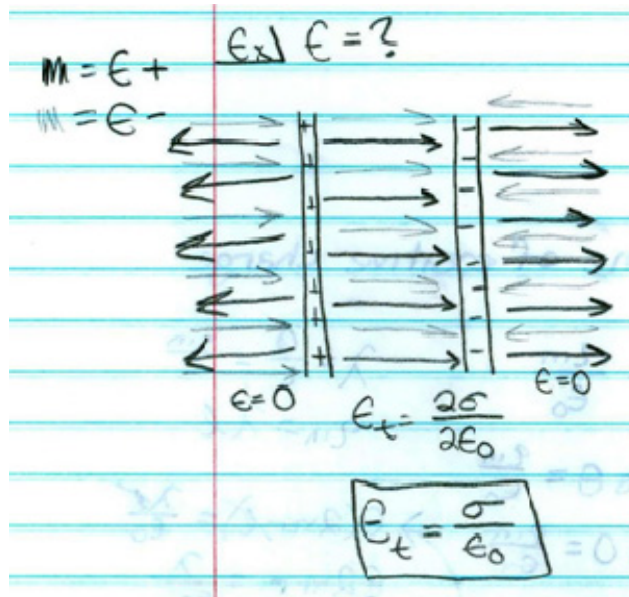 Ex) E = ?
m = E +
m = E -
+ + + + + + +
- - - - - - -
E = 0
E = 0
E_t = 2σ / 2ε₀
E_t = σ / ε₀